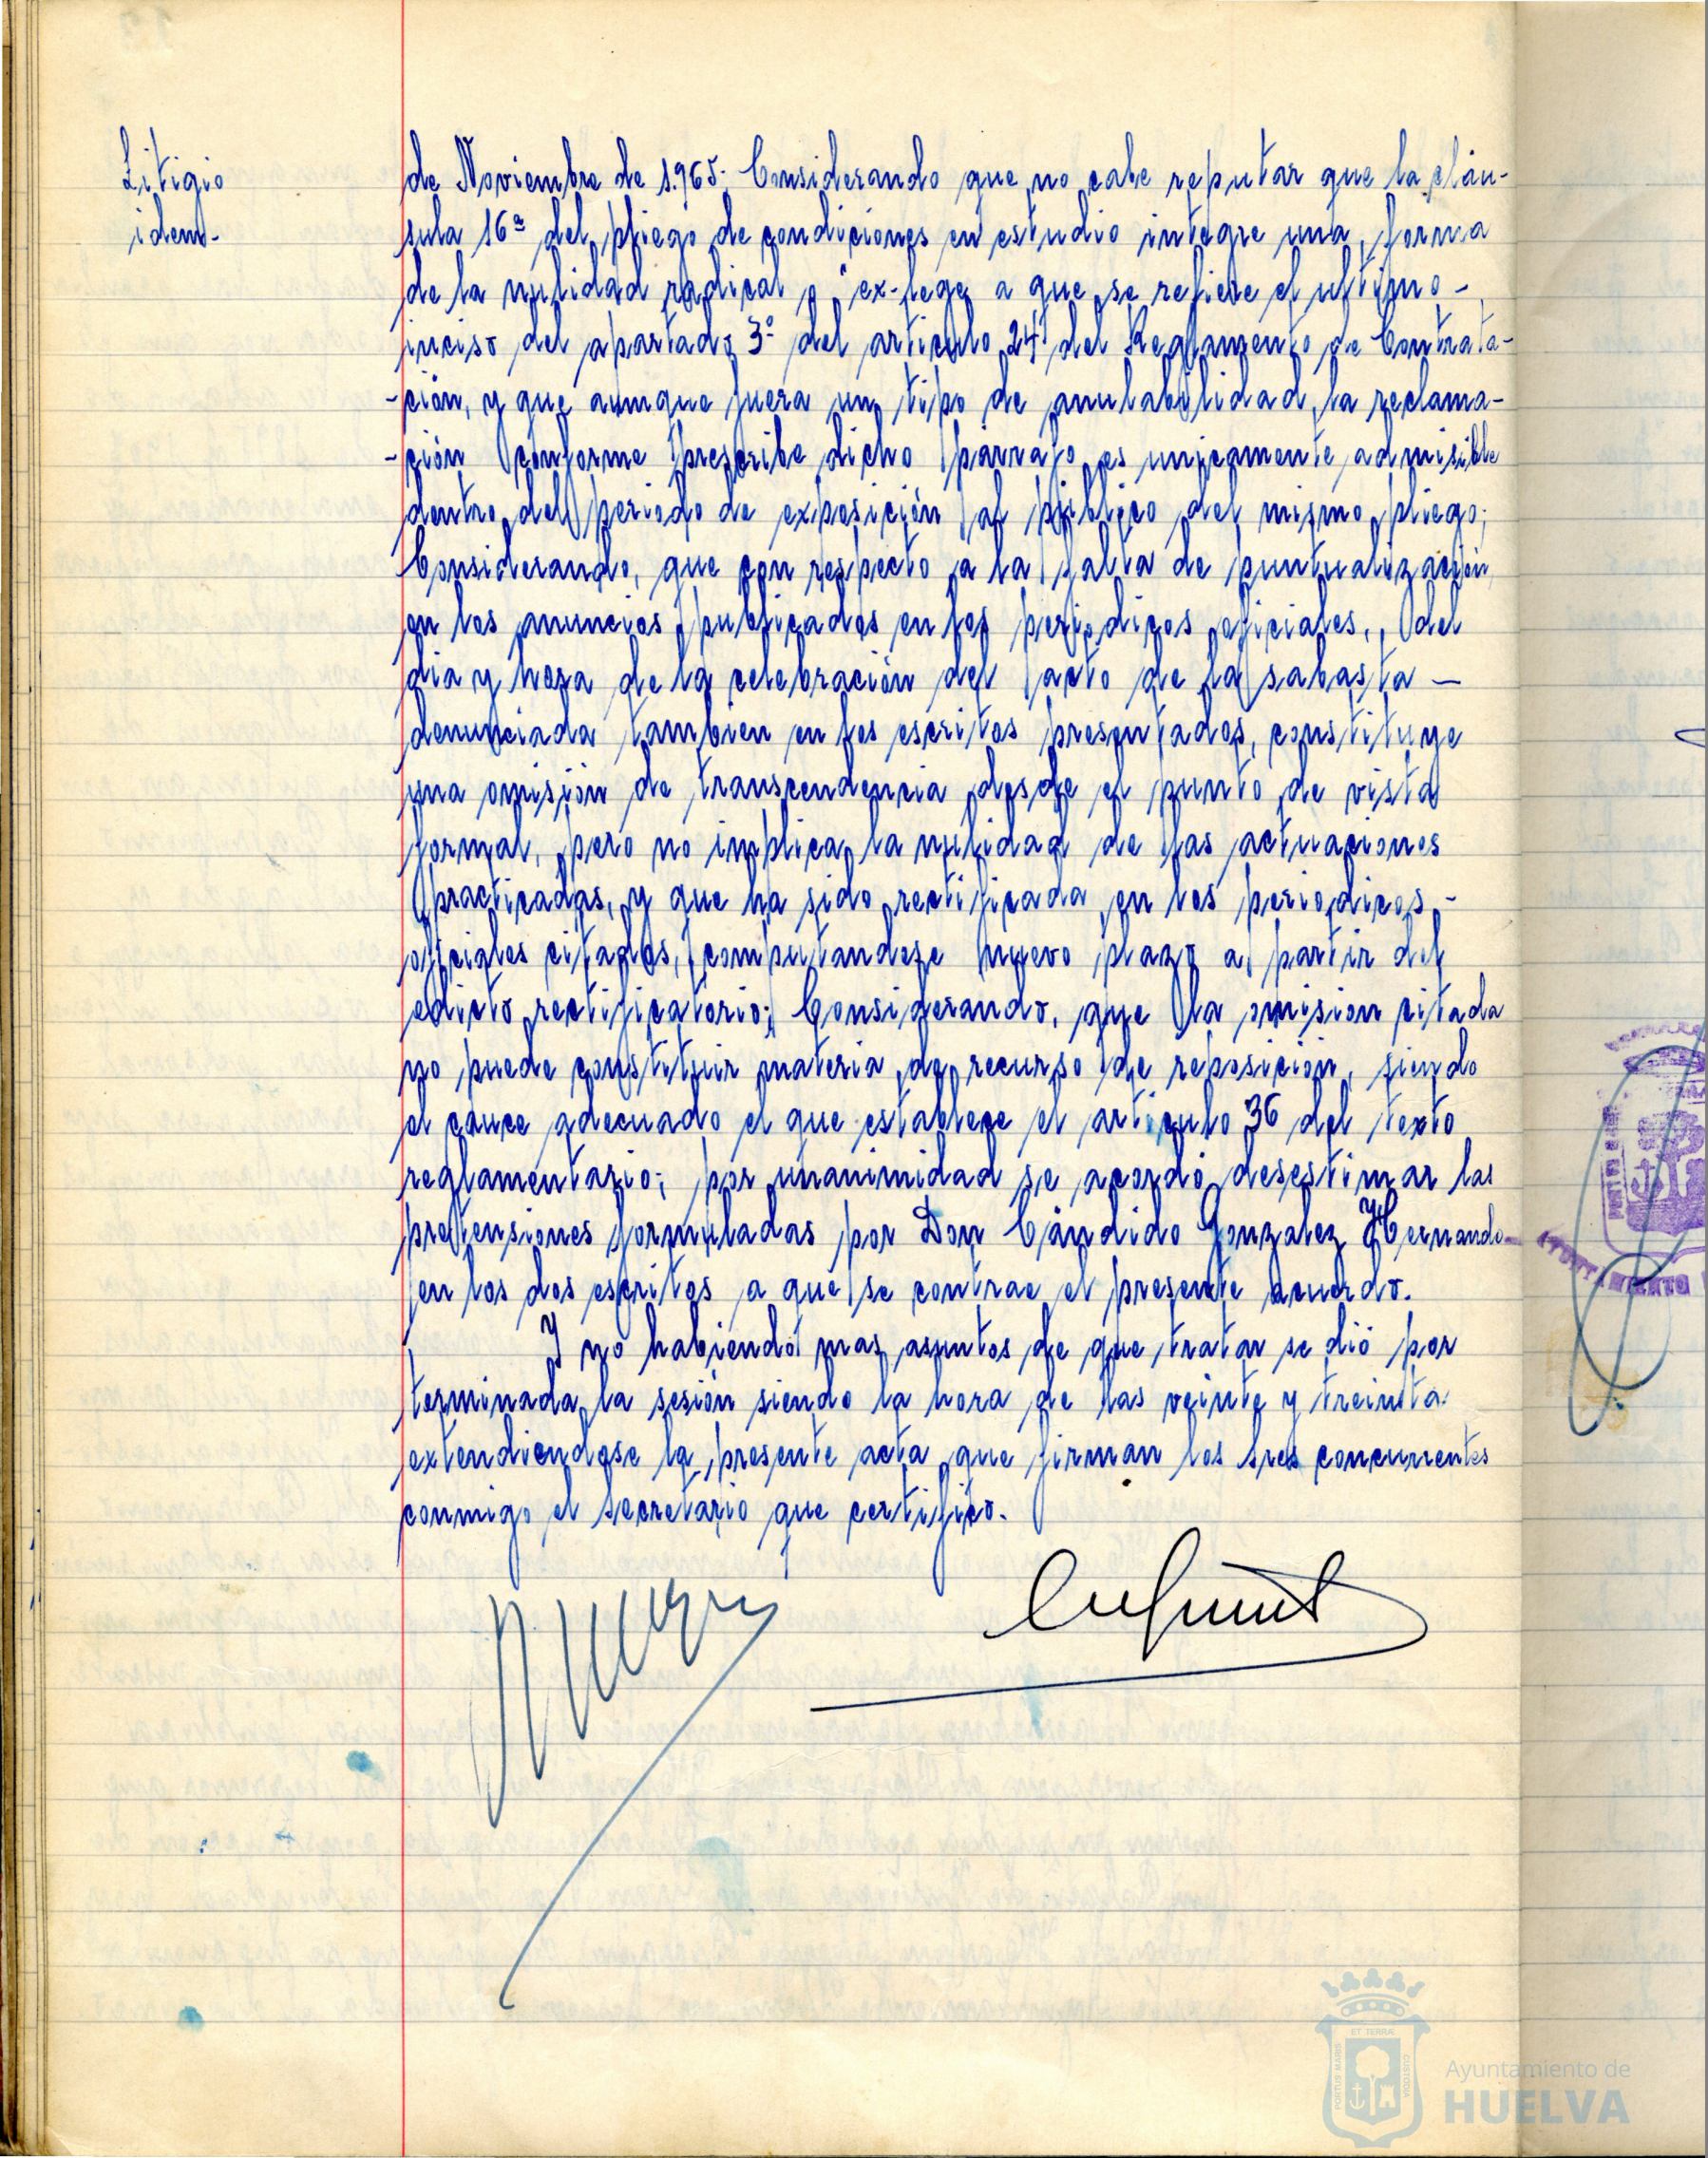 Litigio
idem.-
de Noviembre de 1.965.- Considerando que no cabe reputar que la cláu-
sula 16ª del pliego de condiciones en estudio integre una forma
de la nulidad radical o "ex-lege a que se refiere el ultimo -
inciso del apartado 3º del articulo 24 del Reglamento de Contrata-
-ción, y que aunque fuera un tipo de anulabilidad, la reclama-
-ción conforme prescribe dicho párrafo es unicamente admisible
dentro del periodo de exposición al público del mismo pliego;
Considerando, que con respecto a la falta de puntualización
en los anuncios publicados en los periodicos oficiales, del
dia y hora de la celebración del acto de la sabasta —
denunciada tambien en los escritos presentados, constituye
una omisión de transcendencia desde el punto de vista
formal, pero no implica la nulidad de las actuaciones
practicadas, y que ha sido rectificada en los periodicos -
oficiales citados, computandose nuevo plazo a partir del
edicto rectificatorio; Considerando, que la omision citada
no puede constituir materia de recurso de reposición, siendo
el cauce adecuado el que establece el articulo 36 del texto
reglamentario; por unanimidad se acordó desestimar las
pretensiones formuladas por Don Cándido Gonzalez Hernando
en los dos escritos a que se contrae el presente acuerdo.
Y no habiendo mas asuntos de que tratar se dió por
terminada la sesión siendo la hora de las veinte y treinta
extendiendose la presente acta que firman los sres concurrentes
conmigo el Secretario que certifico.
AYUNTAMIENTO
PORTUS MARIS
ET TERRÆ
CUSTODIA
Ayuntamiento de
HUELVA